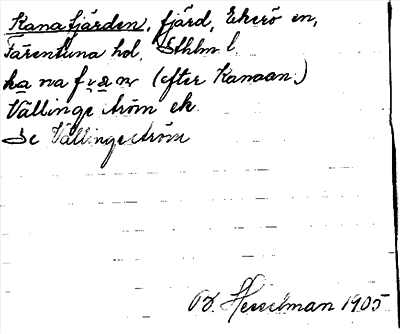 Kanafjärden, fjärd, Ekerö sn,
Färentuna hd, Sthlm l.
(efter Kanaan.)
Vällinge ström ek.
Se Vällingeström
B. Hesselman 1905